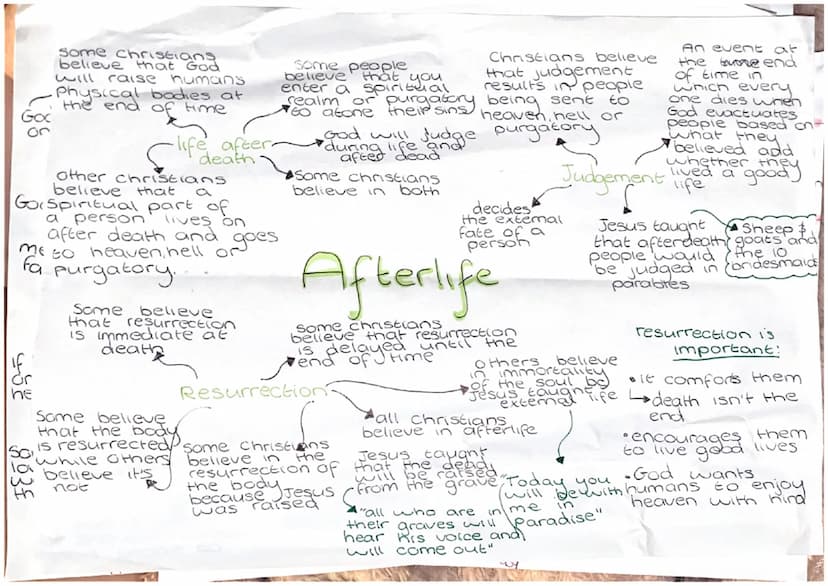 some christians
believe that God
will raise humans
physical bodies at
the end of time
Some people
believe that you
enter a spiritual
realm or purgatory
to atone their sins
life after
death
God will judge
during life and
after dead
Some christians
believe in both
Other christians
believe that a
Spiritual part of
a person lives on
after death and goes
to heaven, hell or
purgatory.
Christians believe
that judgement
results in people
being sent to
heaven, hell or
purgatory
An event at
the end
of time in
which every
one dies when
God evactuates
people based on
what they
believed add
whether they
lived a good
life
Judgement
decides
the external
fate of a
person
Jesus taught
that afterdeath
people would
be judged in
parables
Sheep &
goats and
the 10
bridesmaid
Afterlife
Some believe
that resurrection
is immediate at
death
some christians
believe that resurrection
is delayed until the
end of time
others believe
in immortality
of the soul be
Jesus taught
external life
Resurrection
all christians
believe in afterlife
Some believe
that the body
is resurrected
while others
believe it's
not
some Christians
believe in the
resurrection of
the body
because Jesus
was raised
Jesus taught
that the dead
will be raised
from the grave
"all who are in
their graves will
hear his voice and
will come out"
"Today you
will be with
me in
paradise"
resurrection is
important:
• it comforts them
death isn't the
end
• encourages them
to live good lives
• God wants
humans to enjoy
heaven with hind
God
on
God
me
fa
if
or
he
so
law
th